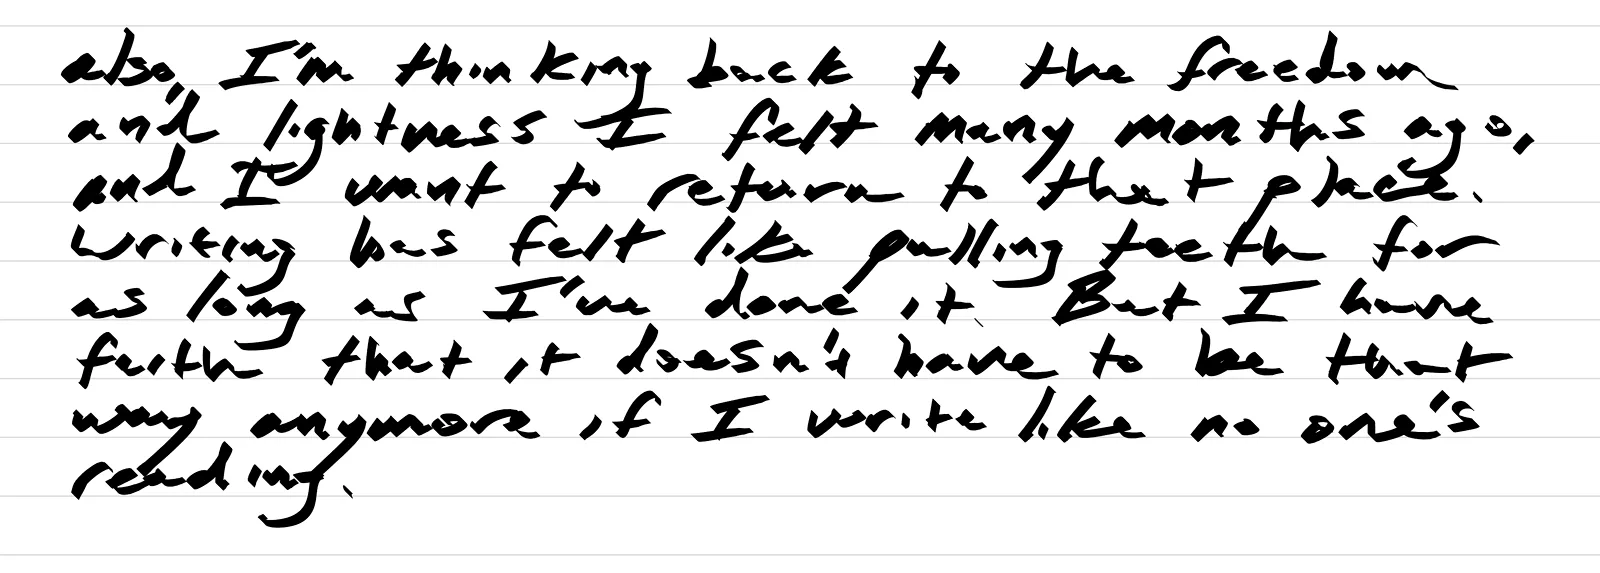 also, I'm thinking back to the freedom
and lightness I felt many months ago,
and I want to return to that place.
Writing has felt like pulling teeth for
as long as I've done it. But I have
faith that it doesn't have to be that
way anymore if I write like no one's
reading.